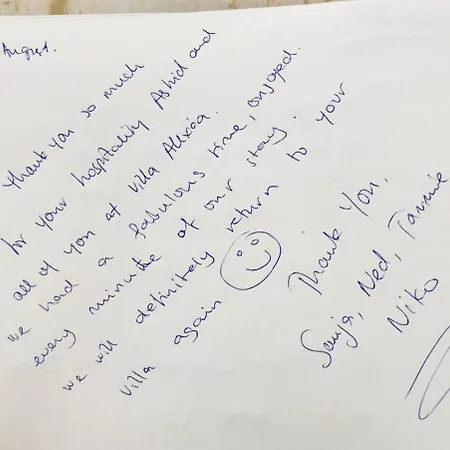 August.
Thank you so much
for your hospitality Astrid and
all of you at villa Alexia.
we had a fabulous time, enjoyed
every minute of our stay.
we will definitely return to your
villa again
Thank you,
Sanja, Ned, Tammie
Niko